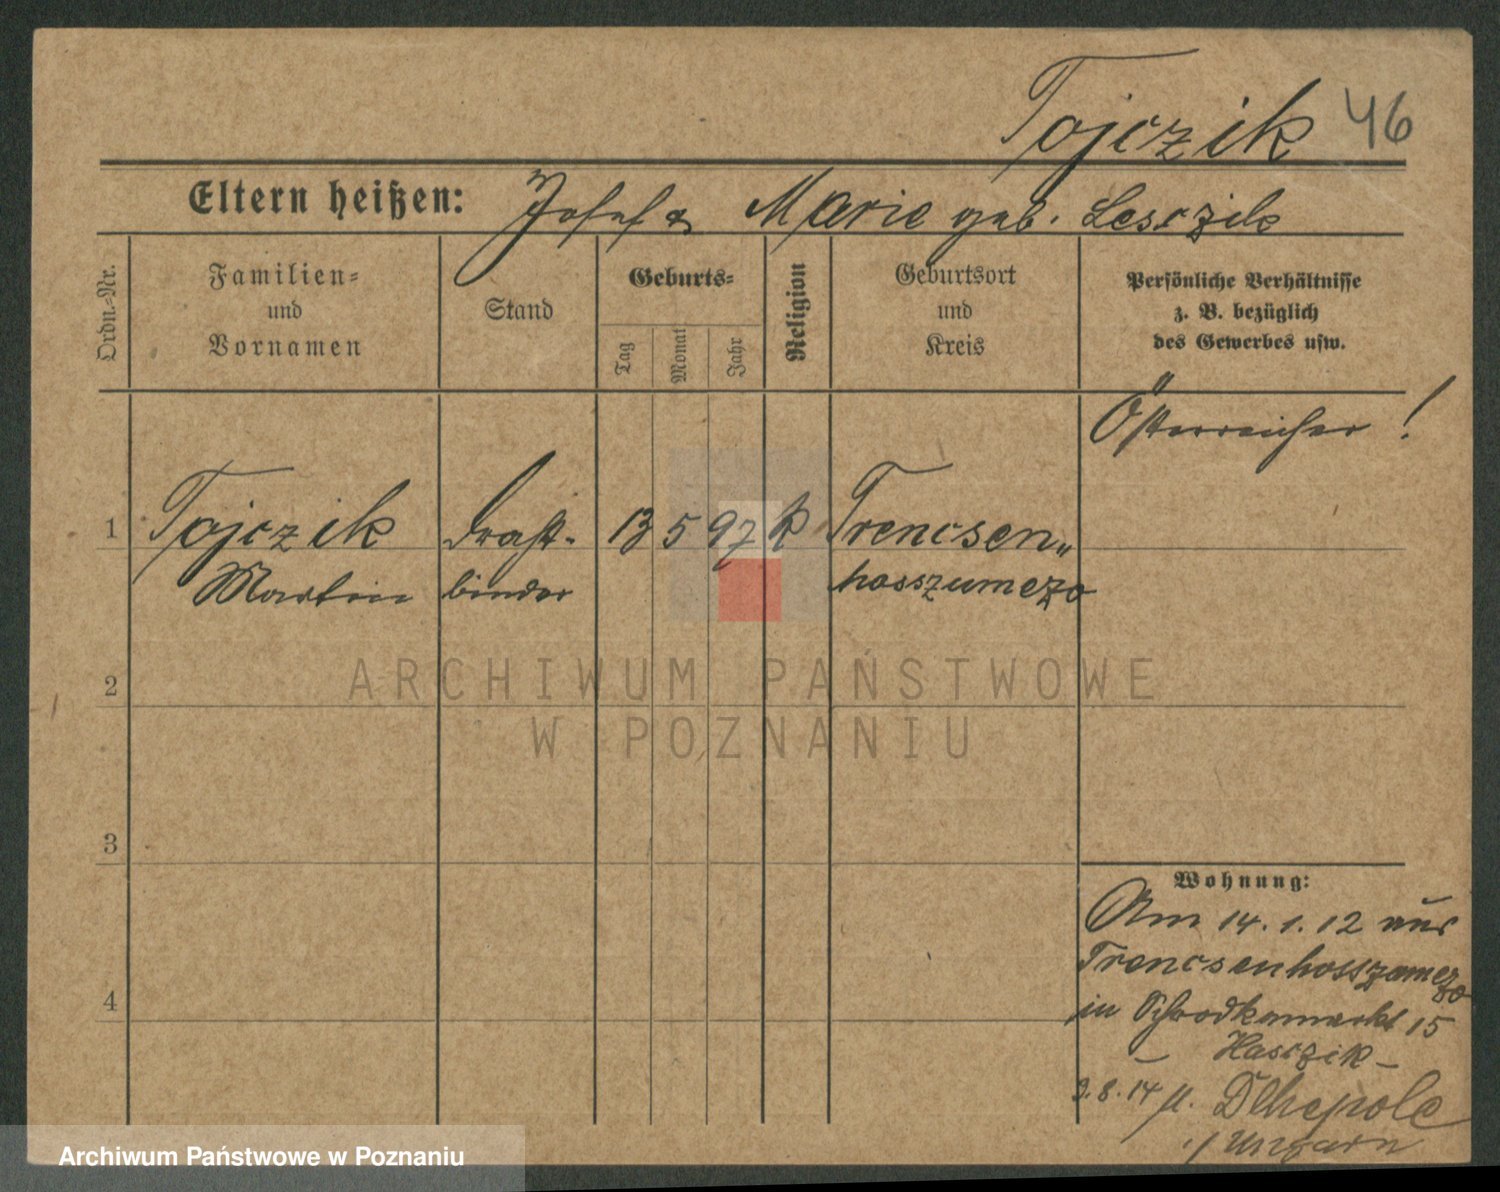 Tojczik 46
Eltern heißen: Josef & Marie geb. Lesczik
Ordn.-Nr.
Familien-
und
Vornamen
Stand
Geburts-
Tag
Monat
Jahr
Religion
Geburtsort
und
Kreis
Persönliche Verhältnisse
z. B. bezüglich
des Gewerbes usw.
Österreicher!
1 Tojczik Draht- 13 5 97 k Trencsen„
Martin binder hosszumezo
2
3
4
Wohnung:
Am 14.1.12 aus
Trencsenhosszumezo
in Schrodkamarkt 15
Hasczik –
3.8.14 n. Dlhepole
i/Ungarn
ARCHIWUM PAŃSTWOWE
W POZNANIU
Archiwum Państwowe w Poznaniu